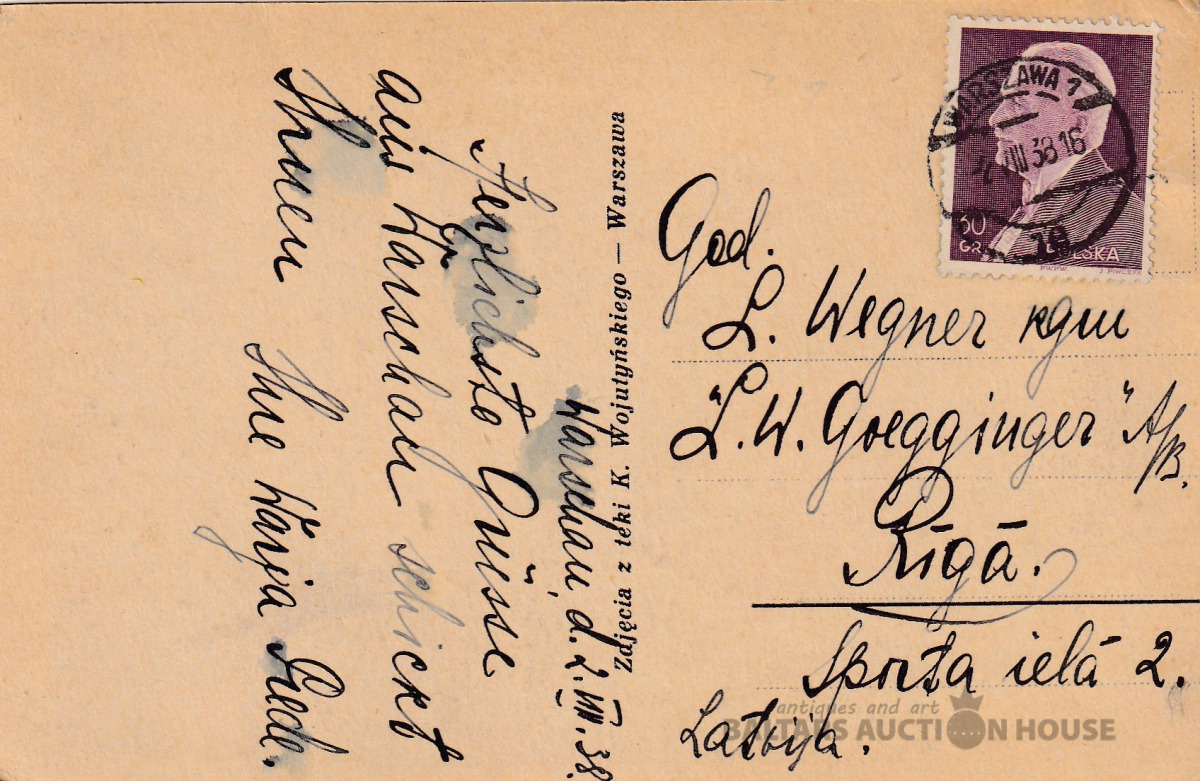 Warschau, d. 2. VIII. 38.
Herzlichste Grüsse
aus Warschau schickt
Ihnen Ihre Wanja
Zdjęcia z teki K. Wojutyńskiego — Warszawa
WARSZAWA 1
VIII 38 16
19
30
GR. POLSKA
God.
L. Wegner kgm
"L. W. Goegginger" A/B.
Rīgā.
Sporta ielā 2.
Latvija.
antiques and art
BALTARS AUCTION HOUSE